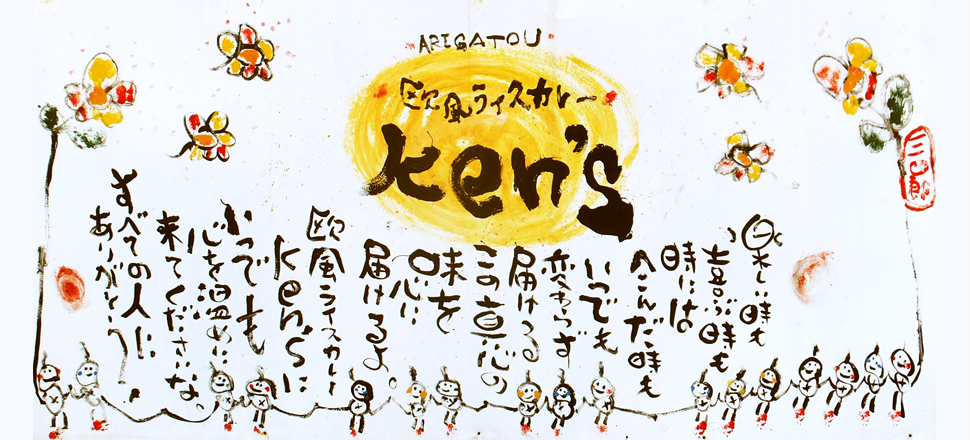 ARIGATOU
欧風ライスカレー
Ken's
楽しい時も
喜ぶ時も
時には
へこんだ時も
いつでも
変わらず
届ける
この真心の
味を
心に
届けるよ
欧風ライスカレー
Ken'sに
いつでも
心を温めに
来てくださいな。
すべての人に
ありがとう